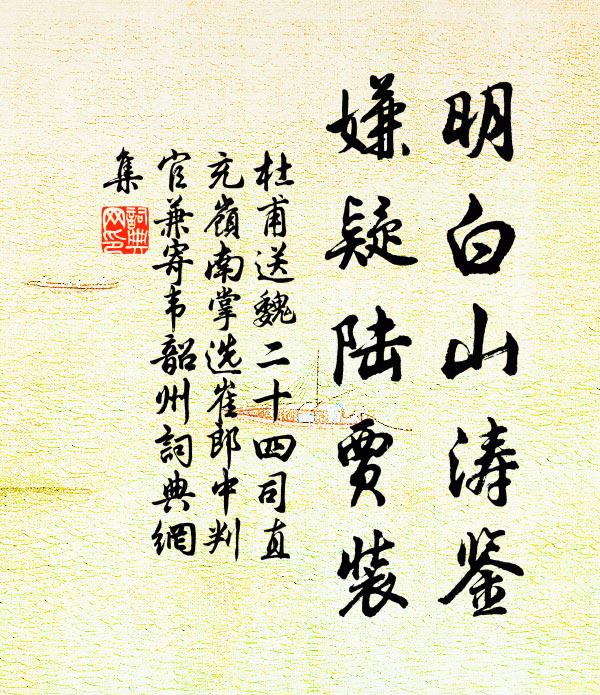 明白山涛鉴
嫌疑陆贾装
杜甫送魏二十四司直
充岭南掌选崔郎中判
官兼寄韦韶州词典網
集
詞典
网印